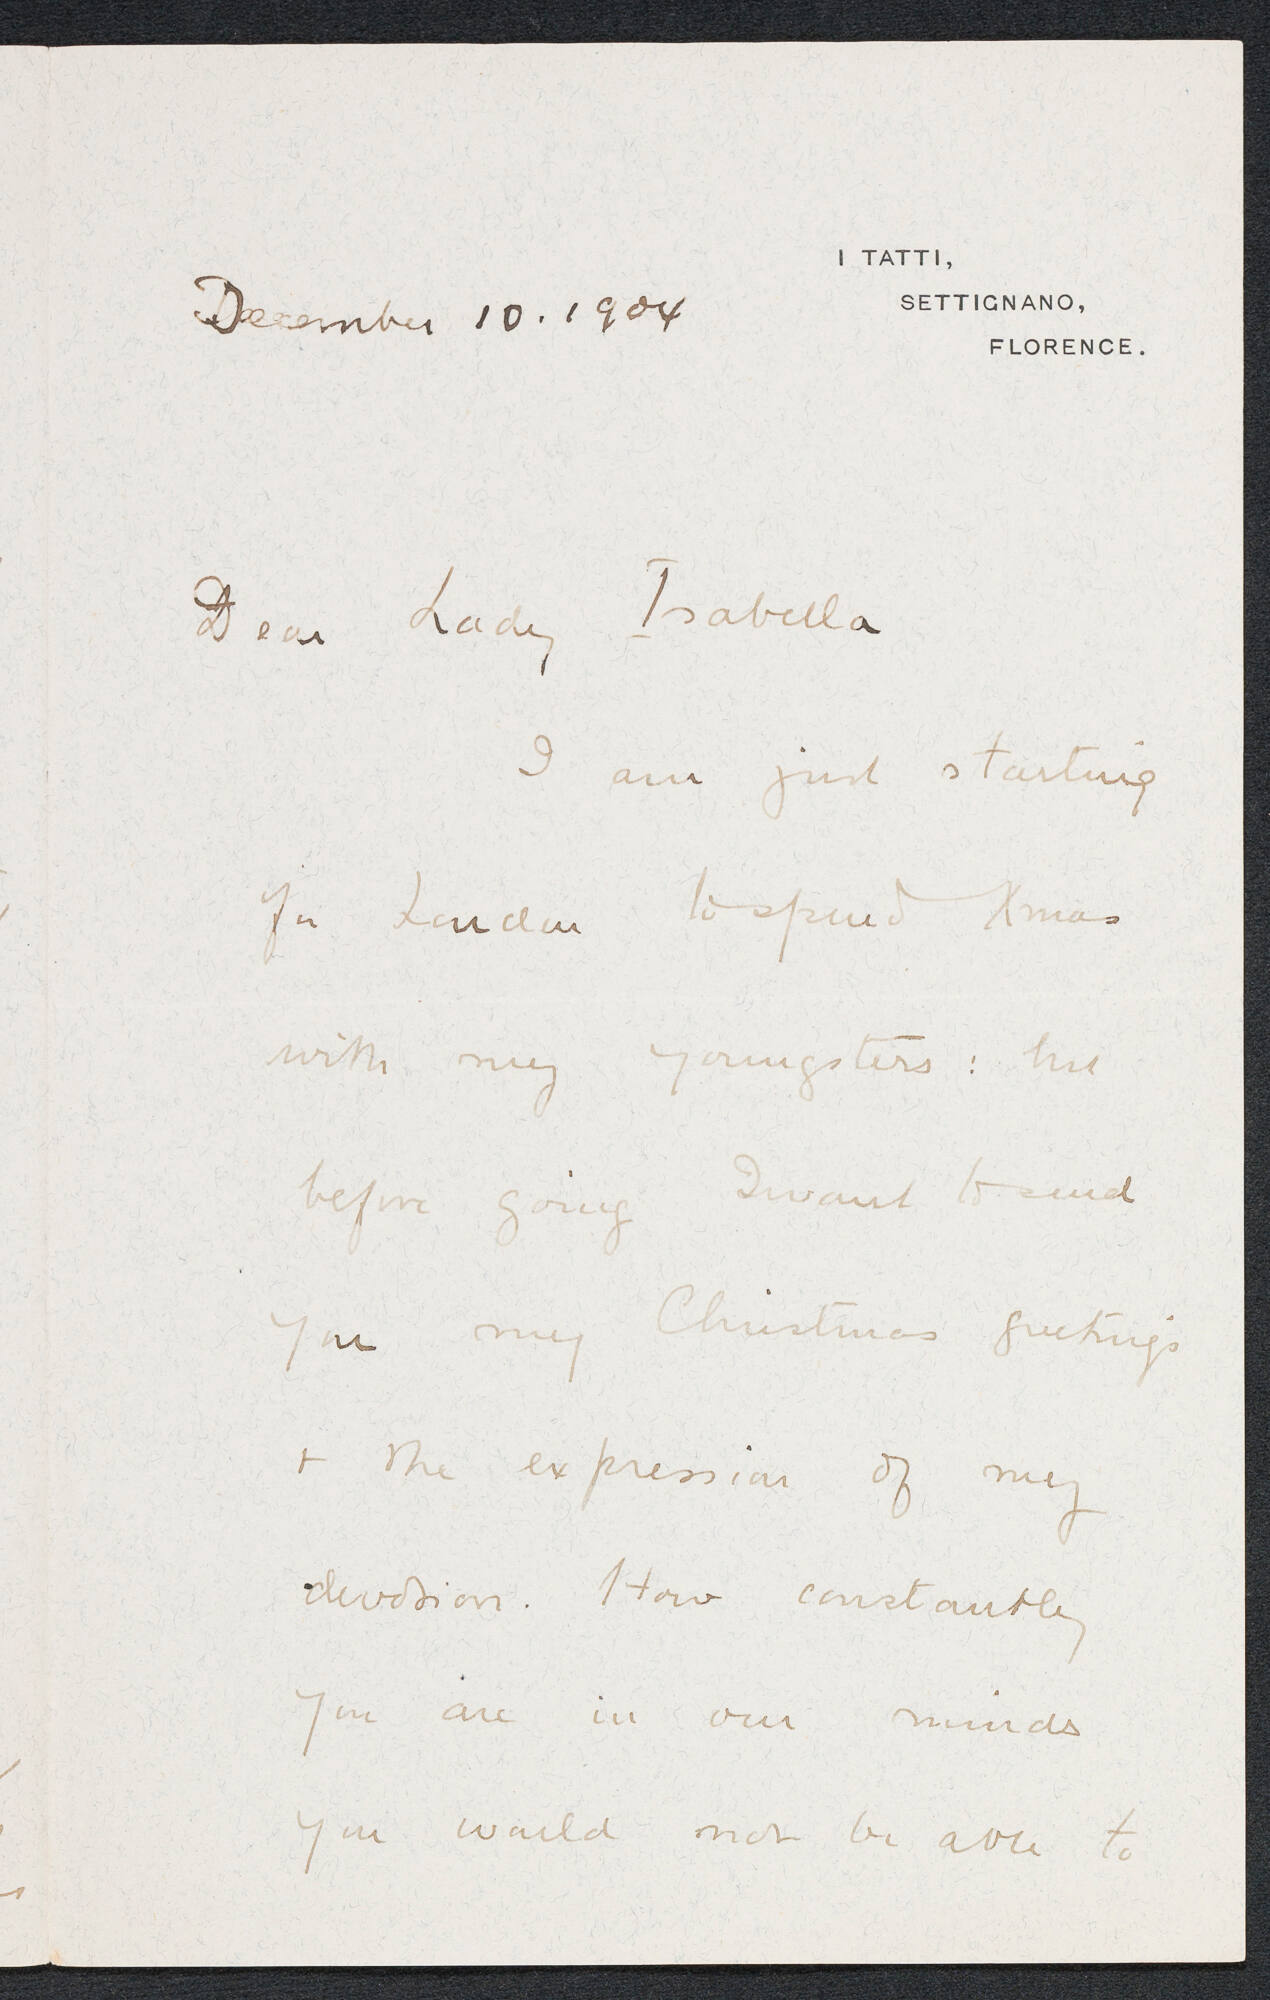 I TATTI,
SETTIGNANO,
FLORENCE.
December 10. 1904
Dear Lady Isabella
I am just starting
for London to spend Xmas
with my youngsters : but
before going I want to send
you my Christmas greetings
+ the expression of my
devotion. How constantly
you are in our minds
you would not be able to